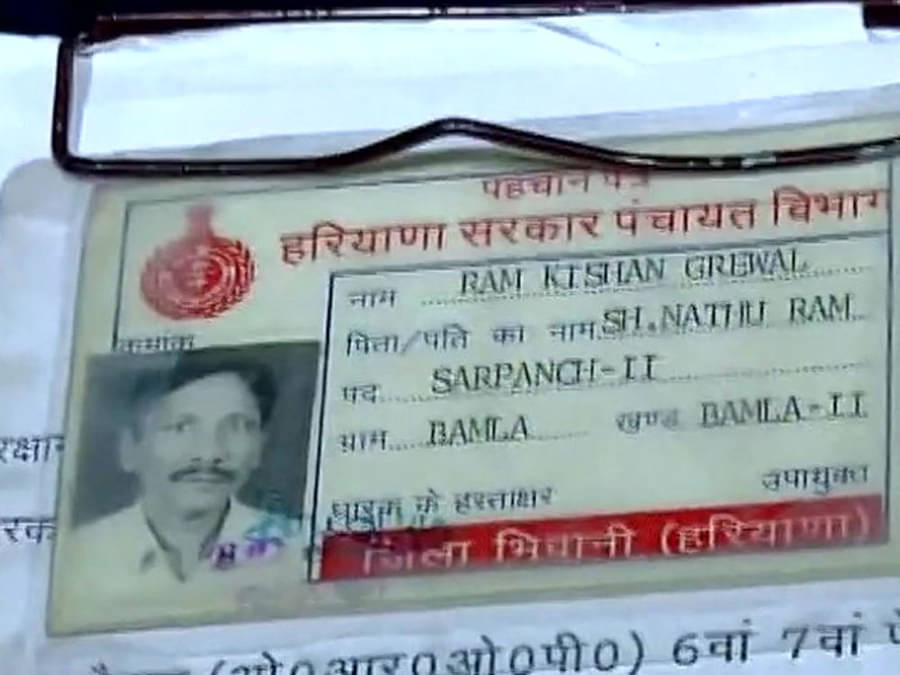 पहचान पत्र
हरियाणा सरकार पंचायत विभाग
नाम RAM KISHAN GREWAL
पिता/पति का नाम SH.NATHU RAM
क्रमांक
पद SARPANCH-II
ग्राम BAMLA खण्ड BAMLA-II
धारक के हस्ताक्षर उपायुक्त
जिला भिवानी (हरियाणा)
(ओ0आर0ओ0पी0) 6वां 7वां